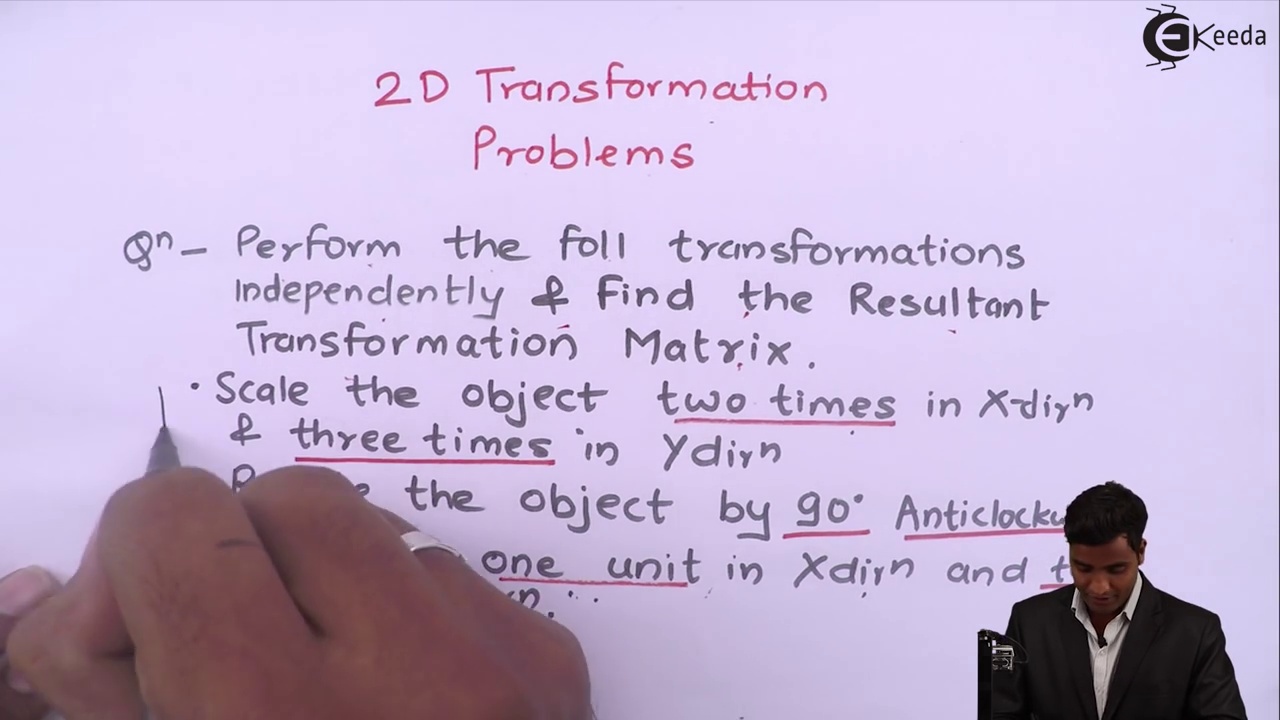 EKeeda
2D Transformation
Problems
Qn - Perform the foll transformations
Independently & Find the Resultant
Transformation Matrix.
• Scale the object two times in X-dirn
& three times in Ydirn
the object by 90° Anticlockw
one unit in Xdirn and